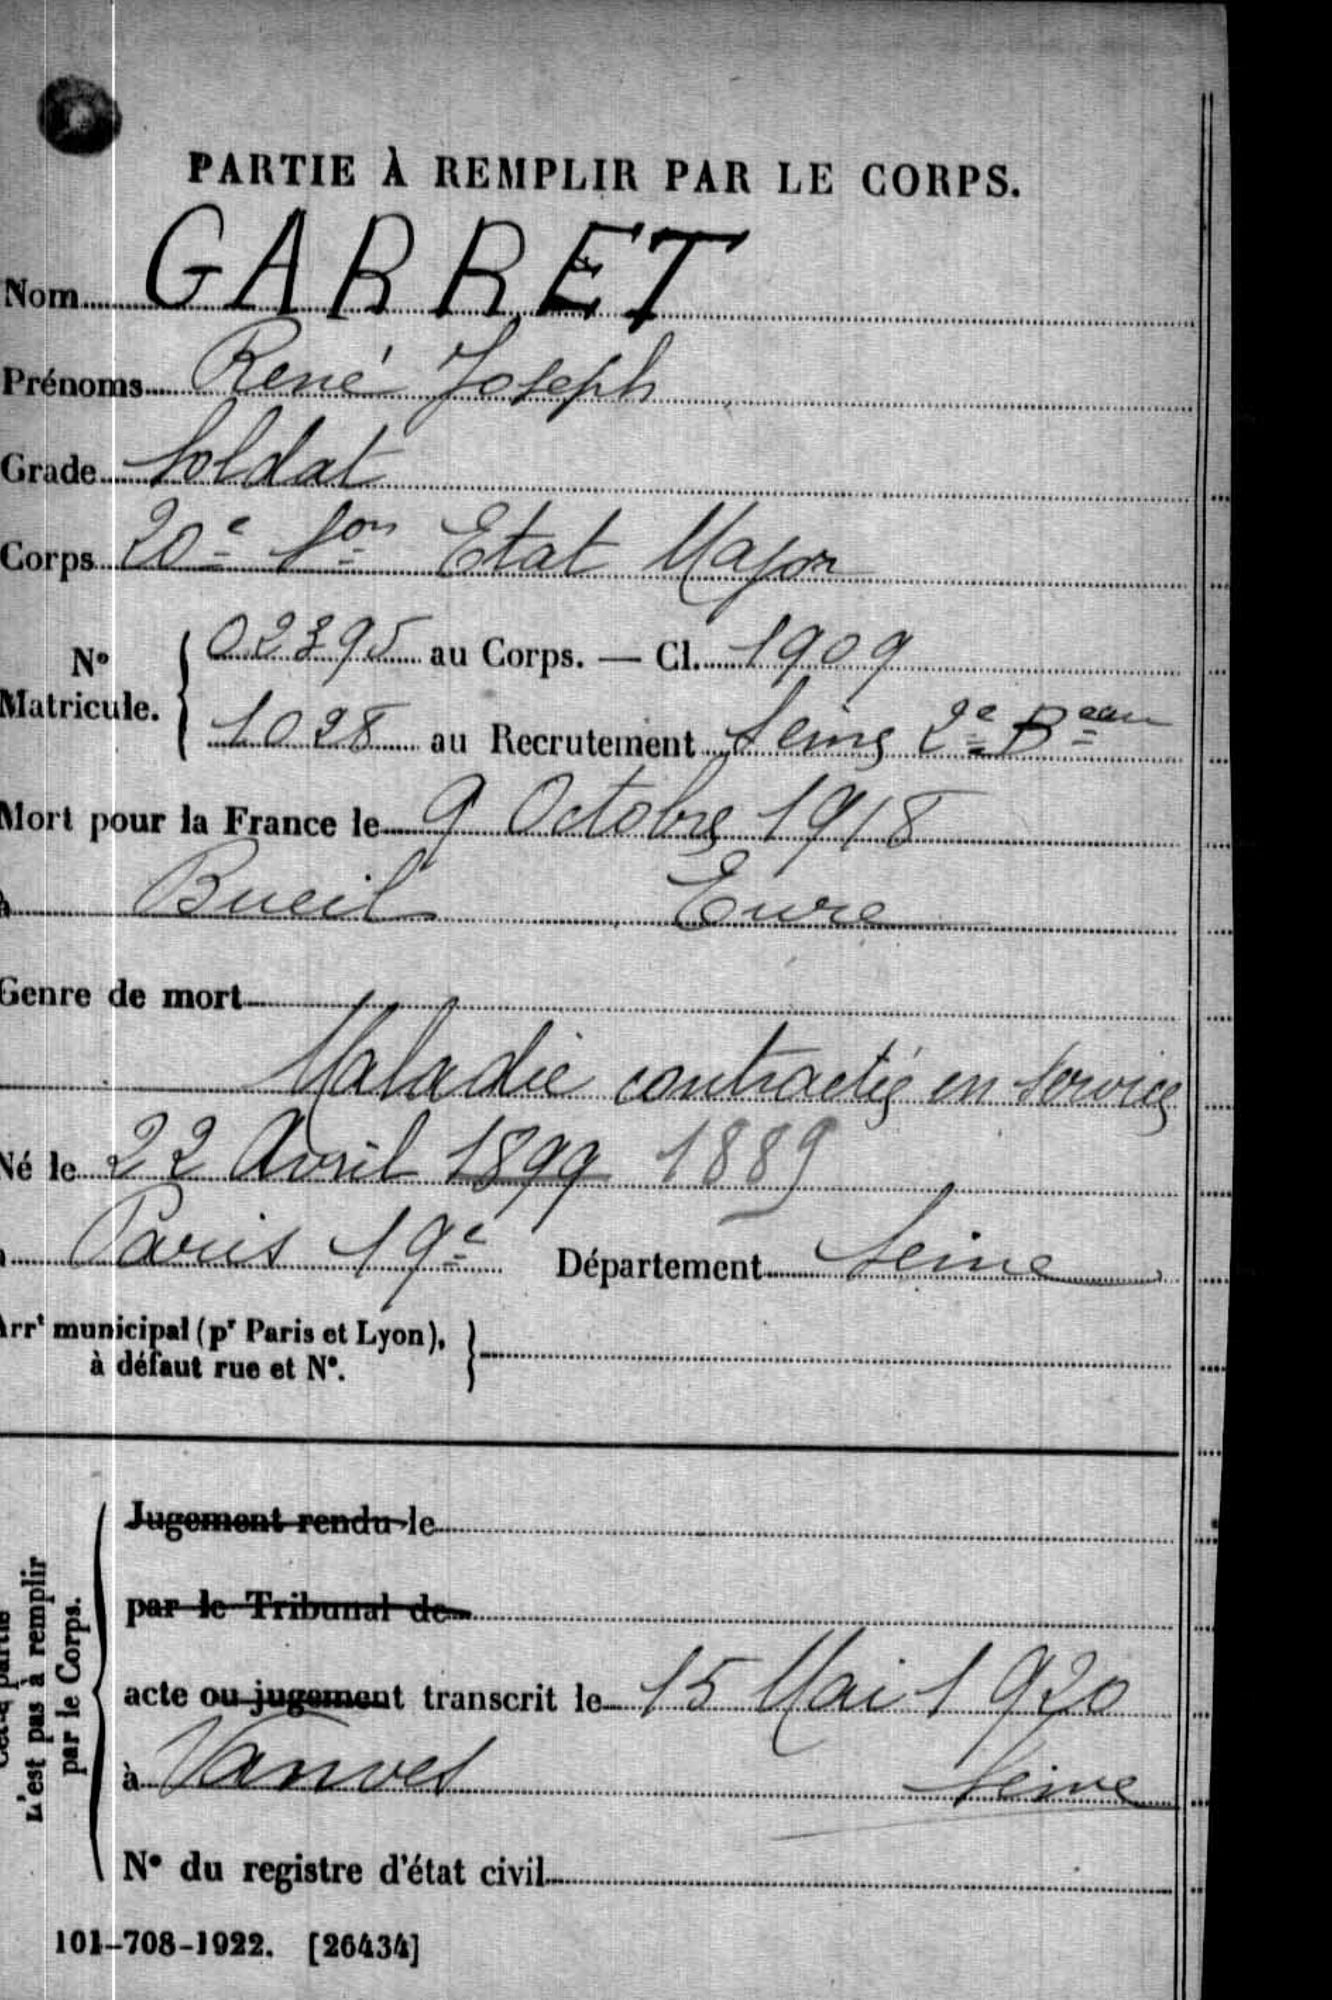 PARTIE À REMPLIR PAR LE CORPS.
Nom GARRET
Prénoms René Joseph
Grade Soldat
Corps 20e Son Etat Major
No Matricule. { 02395 au Corps. — Cl. 1909
1028 au Recrutement Seine 2e Beau
Mort pour la France le 9 Octobre 1918
à Bueil Eure
Genre de mort
Maladie contractée en service
Né le 22 Avril 1899 1889
à Paris 19e Département Seine
Arrt municipal (pr Paris et Lyon), }
à défaut rue et No.
Jugement rendu le
par le Tribunal de
acte ou jugement transcrit le 15 Mai 1920
à Vanves Seine
No du registre d'état civil
partie
n'est pas à remplir
par le Corps.
101-708-1922. [26434]